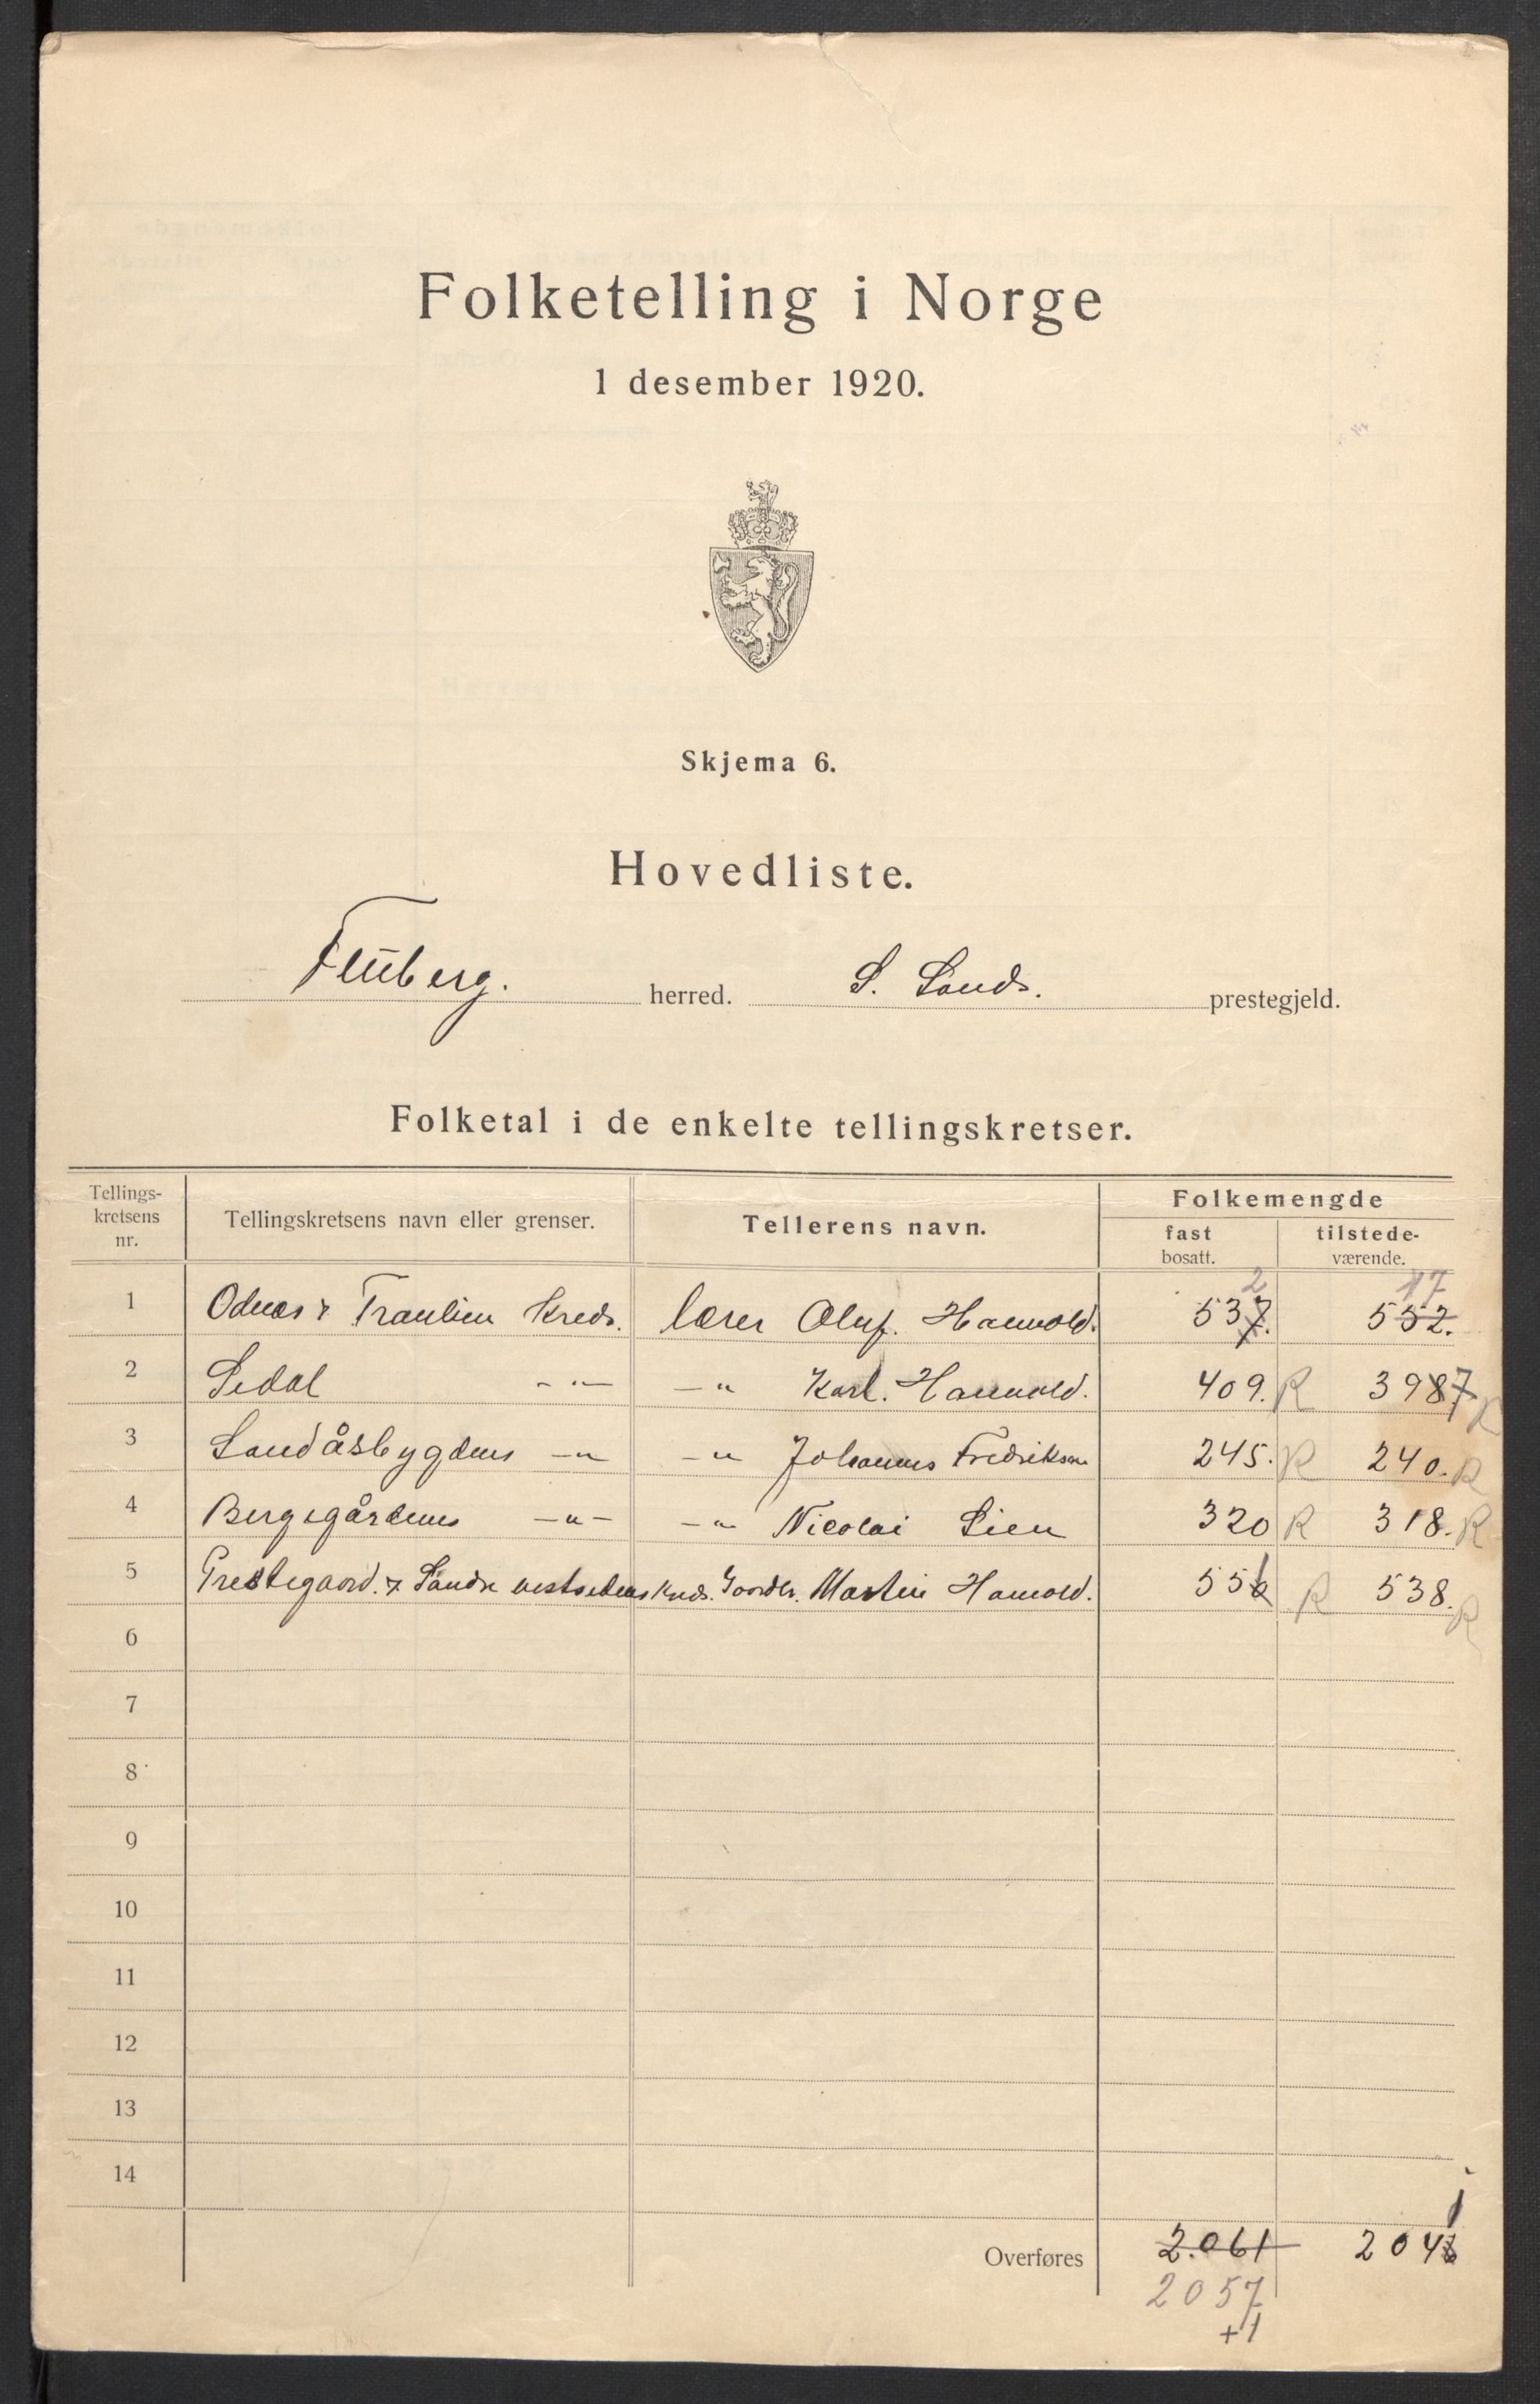 Folketelling i Norge
1 desember 1920.
Skjema 6.
Hovedliste.
Fluberg. herred. S. Lands. prestegjeld.
Folketal i de enkelte tellingskretser.
Tellings-
kretsens
nr.
Tellingskretsens navn eller grenser.
Tellerens navn.
Folkemengde
fast
bosatt.
tilstede-
værende.
2 17
1 Odnes & Kreds. lærer Oluf. Hanvold. 537. 552.
2 Sedal - " - - " Karl. Hanvold. 409. R 3987 R
3 Landåsbygdens - " - " Johannes Fredriksen 245. R 240. R
4 Bergegårdens - " - - " Nicolai Lien 320 R 318. R
1
5 Prestegaard. & Søndre vestsidens Kreds. Gaardbr. Martin Hanvold. 556 R 538. R
6
7
8
9
10
11
12
13
14
1
Overføres 2.061 2046
2057
+1